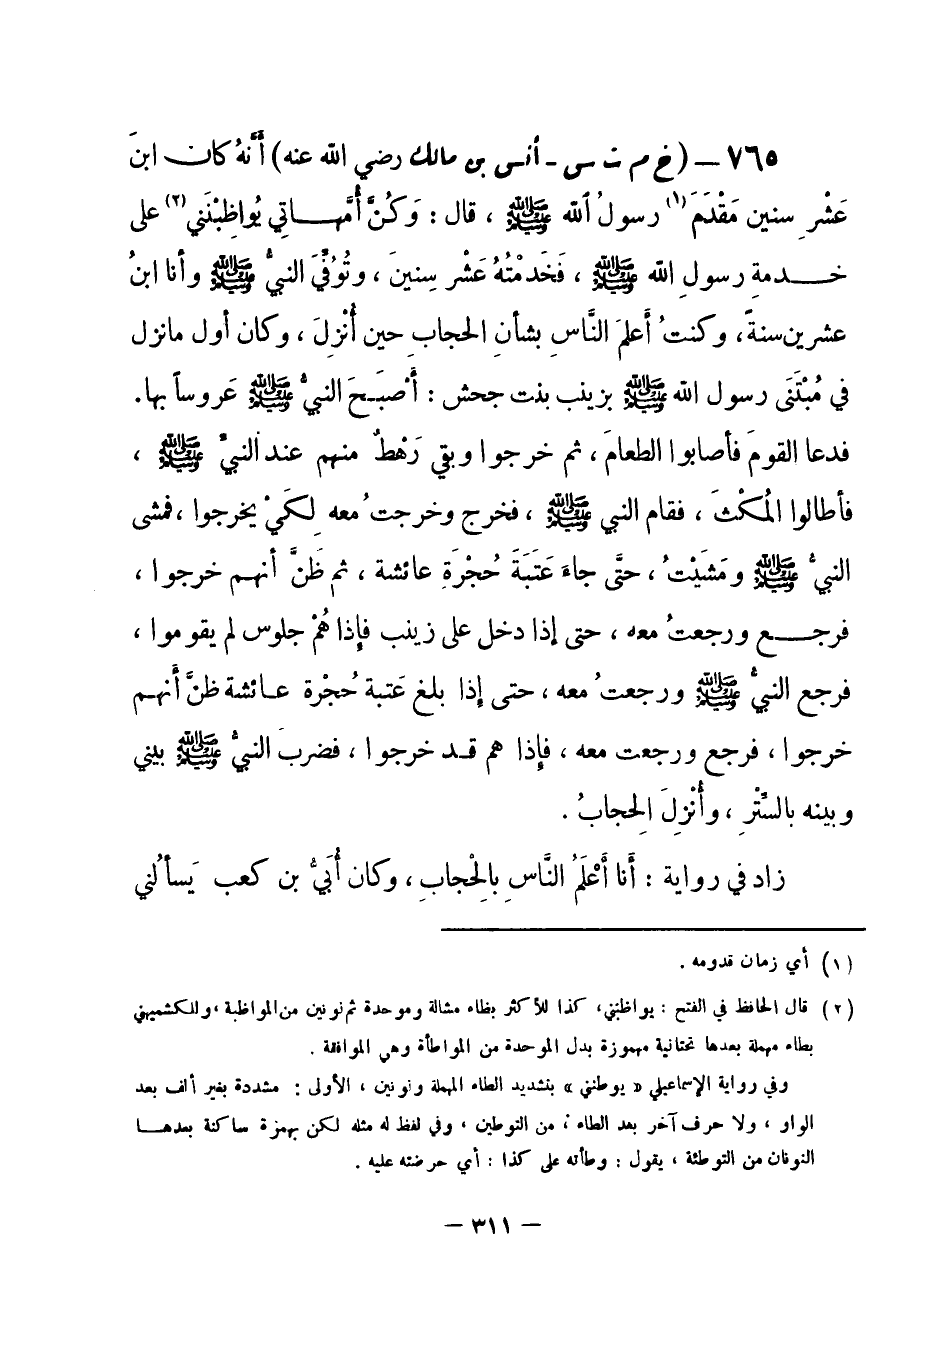 ٧٦٥ – (خ م ت س - أنس بن مالك رضي الله عنه) أَنَّهُ كان ابنَ
عَشْرِ سنين مَقْدَمَ(١) رسولُ الله ﷺ ، قال : وَكُنَّ أُمَّهاتي يُواظِبْنَني(٢) على
خدمةِ رسولِ الله ﷺ ، فَخَدمْتُهُ عَشْرَ سِنينَ ، وتُوُفِّيَ النبيُّ ﷺ وأنا ابنُ
عشرين سنةً، وكنتُ أَعلمَ النَّاسِ بشأنِ الحجابِ حين أُنْزِلَ ، وكان أول مانزل
في مُبْتَنَى رسول الله ﷺ بزينب بنت جحش : أَصْبَحَ النبيُّ ﷺ عَروساً بها.
فدعا القومَ فأصابوا الطعامَ ، ثم خرجوا وبقي رَهْطٌ منهم عند النبيِّ ﷺ ،
فأطالوا المُكْثَ ، فقام النبي ﷺ ، فخرج وخرجتُ معه لِكَيْ يخرجوا ، فمشى
النبيُّ ﷺ ومَشَيْتُ ، حتَّى جاءَ عَتَبَةَ حُجْرَةِ عائشة ، ثم ظَنَّ أنهم خرجوا ،
فرجع ورجعتُ معه ، حتى إذا دخل على زينب فإِذا هُمْ جلوس لم يقوموا ،
فرجع النبيُّ ﷺ ورجعتُ معه ، حتى إذا بلغ عَتبة حُجْرة عائشة ظنَّ أَنهم
خرجوا ، فرجع ورجعت معه ، فإِذا هم قد خرجوا ، فضربَ النبيُّ ﷺ بيني
وبينه بالسِّتْرِ ، وأُنْزِلَ الحِجابُ .
زاد في رواية : أَنا أَعْلَمُ النَّاسِ بالِحْجابِ ، وكان أُبَيُّ بن كعب يَسأَلني
(١) أي زمان قدومه .
(٢) قال الحافظ في الفتح : يواظبني، كذا للأكثر بظاء مشالة وموحدة ثم نونين من المواظبة ، وللكشميهني
بطاء مهملة بعدها تحتانية مهموزة بدل الموحدة من المواطأة وهي الموافقة .
وفي رواية الإسماعيلي « يوطنني » بتشديد الطاء المهملة ونونين ، الأولى : مشددة بغير ألف بعد
الواو ، ولا حرف آخر بعد الطاء ، من التوطين ، وفي لفظ له مثله لكن بهمزة ساكنة بعدها
النونان من التوطئة ، يقول : وطأته على كذا : أي حرضته عليه .
– ٣١١ –